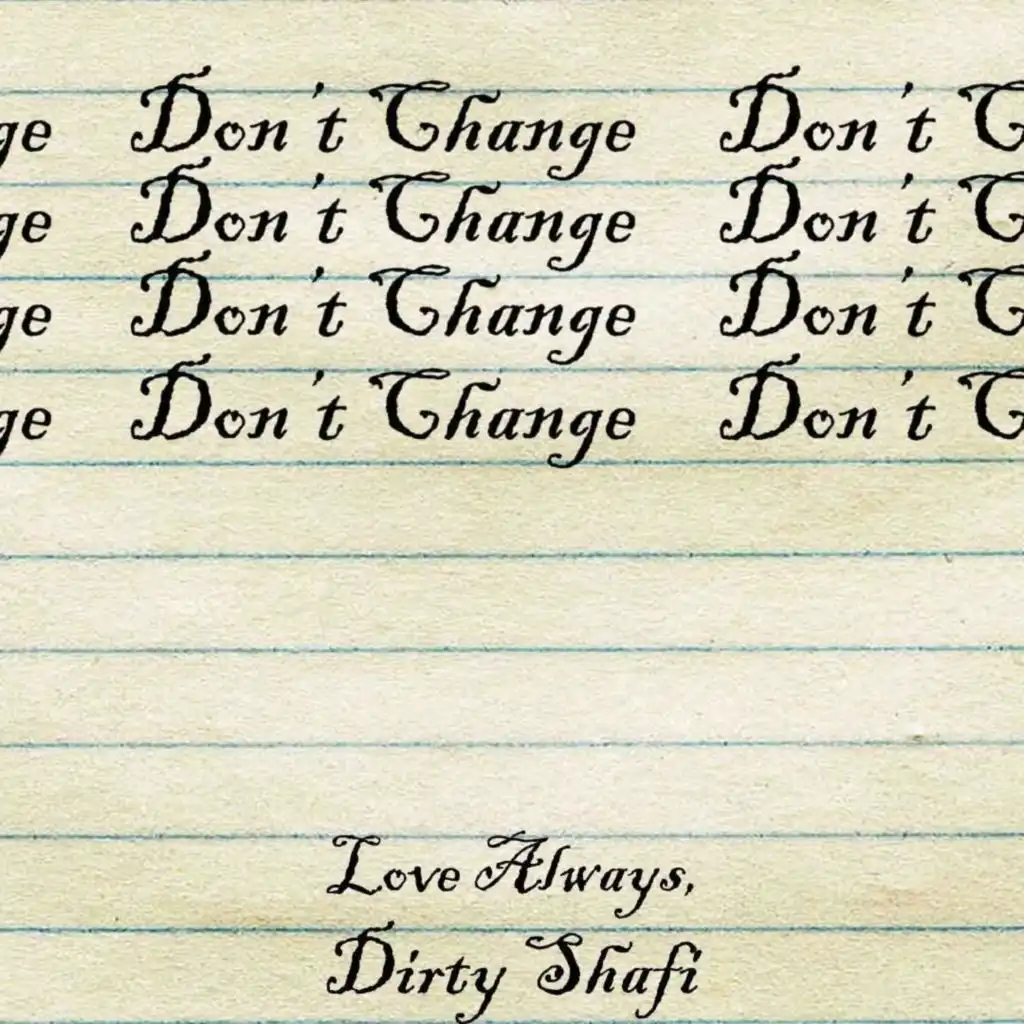 ge Don't Change Don't C
ge Don't Change Don't C
ge Don't Change Don't C
ge Don't Change Don't C
Love Always,
Dirty Shafi